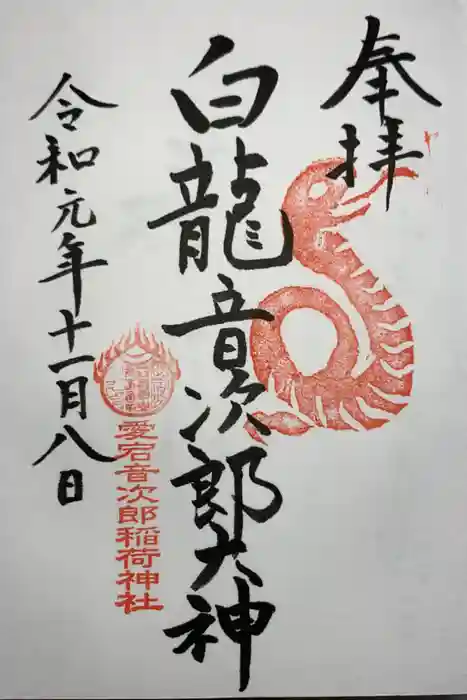 奉拝
白龍音次郎大神
愛宕音次郎稲荷神社
令和元年十一月八日